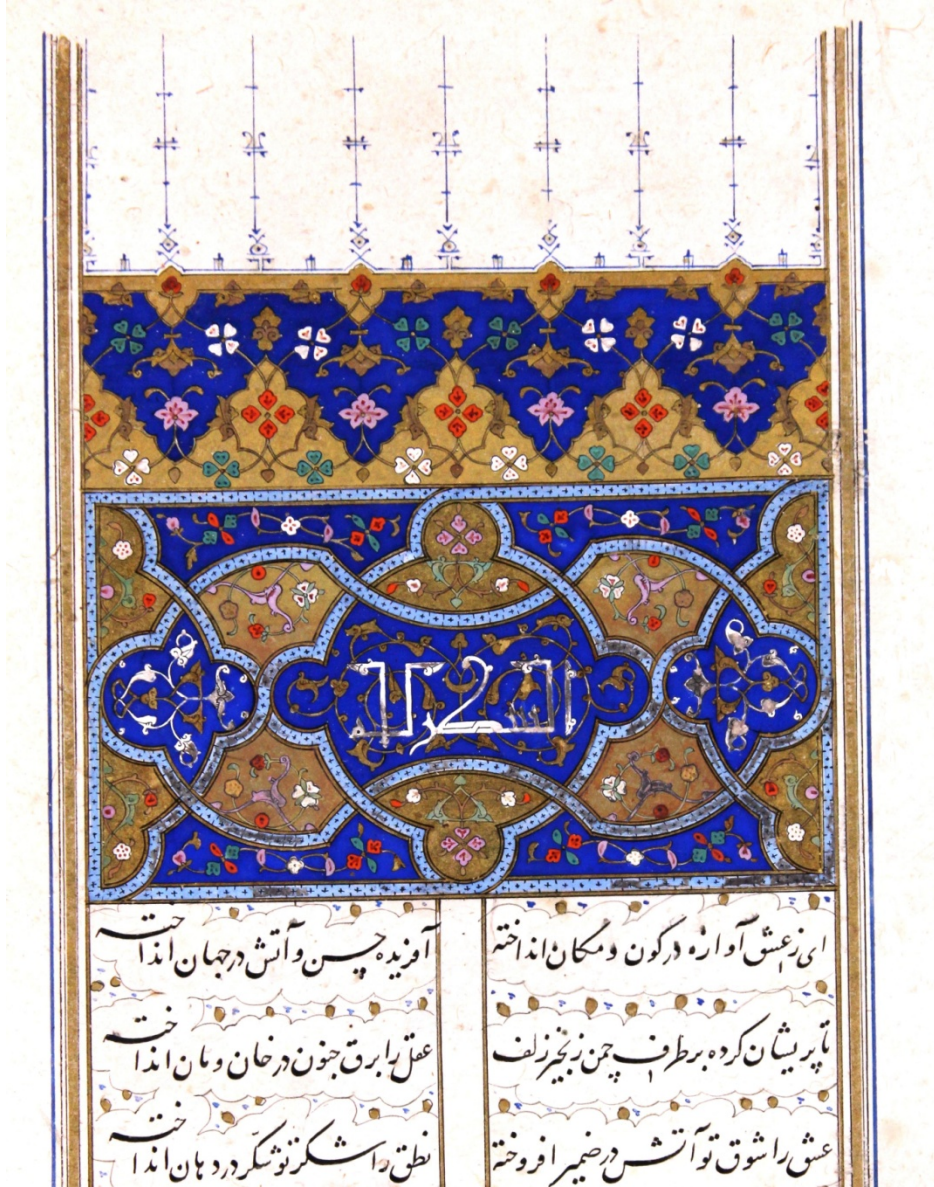 الشکر لله
ای ز عشق آوازه در کون و مکان انداخته آفریده حسن و آتش در جهان انداخته
تا پریشان کرده بر طرف چمن زنجیر زلف عقل را برق جنون در خان و مان انداخته
عشق را شوق تو آتش در ضمیر افروخته نطق را شکر تو شکر در دهان انداخته